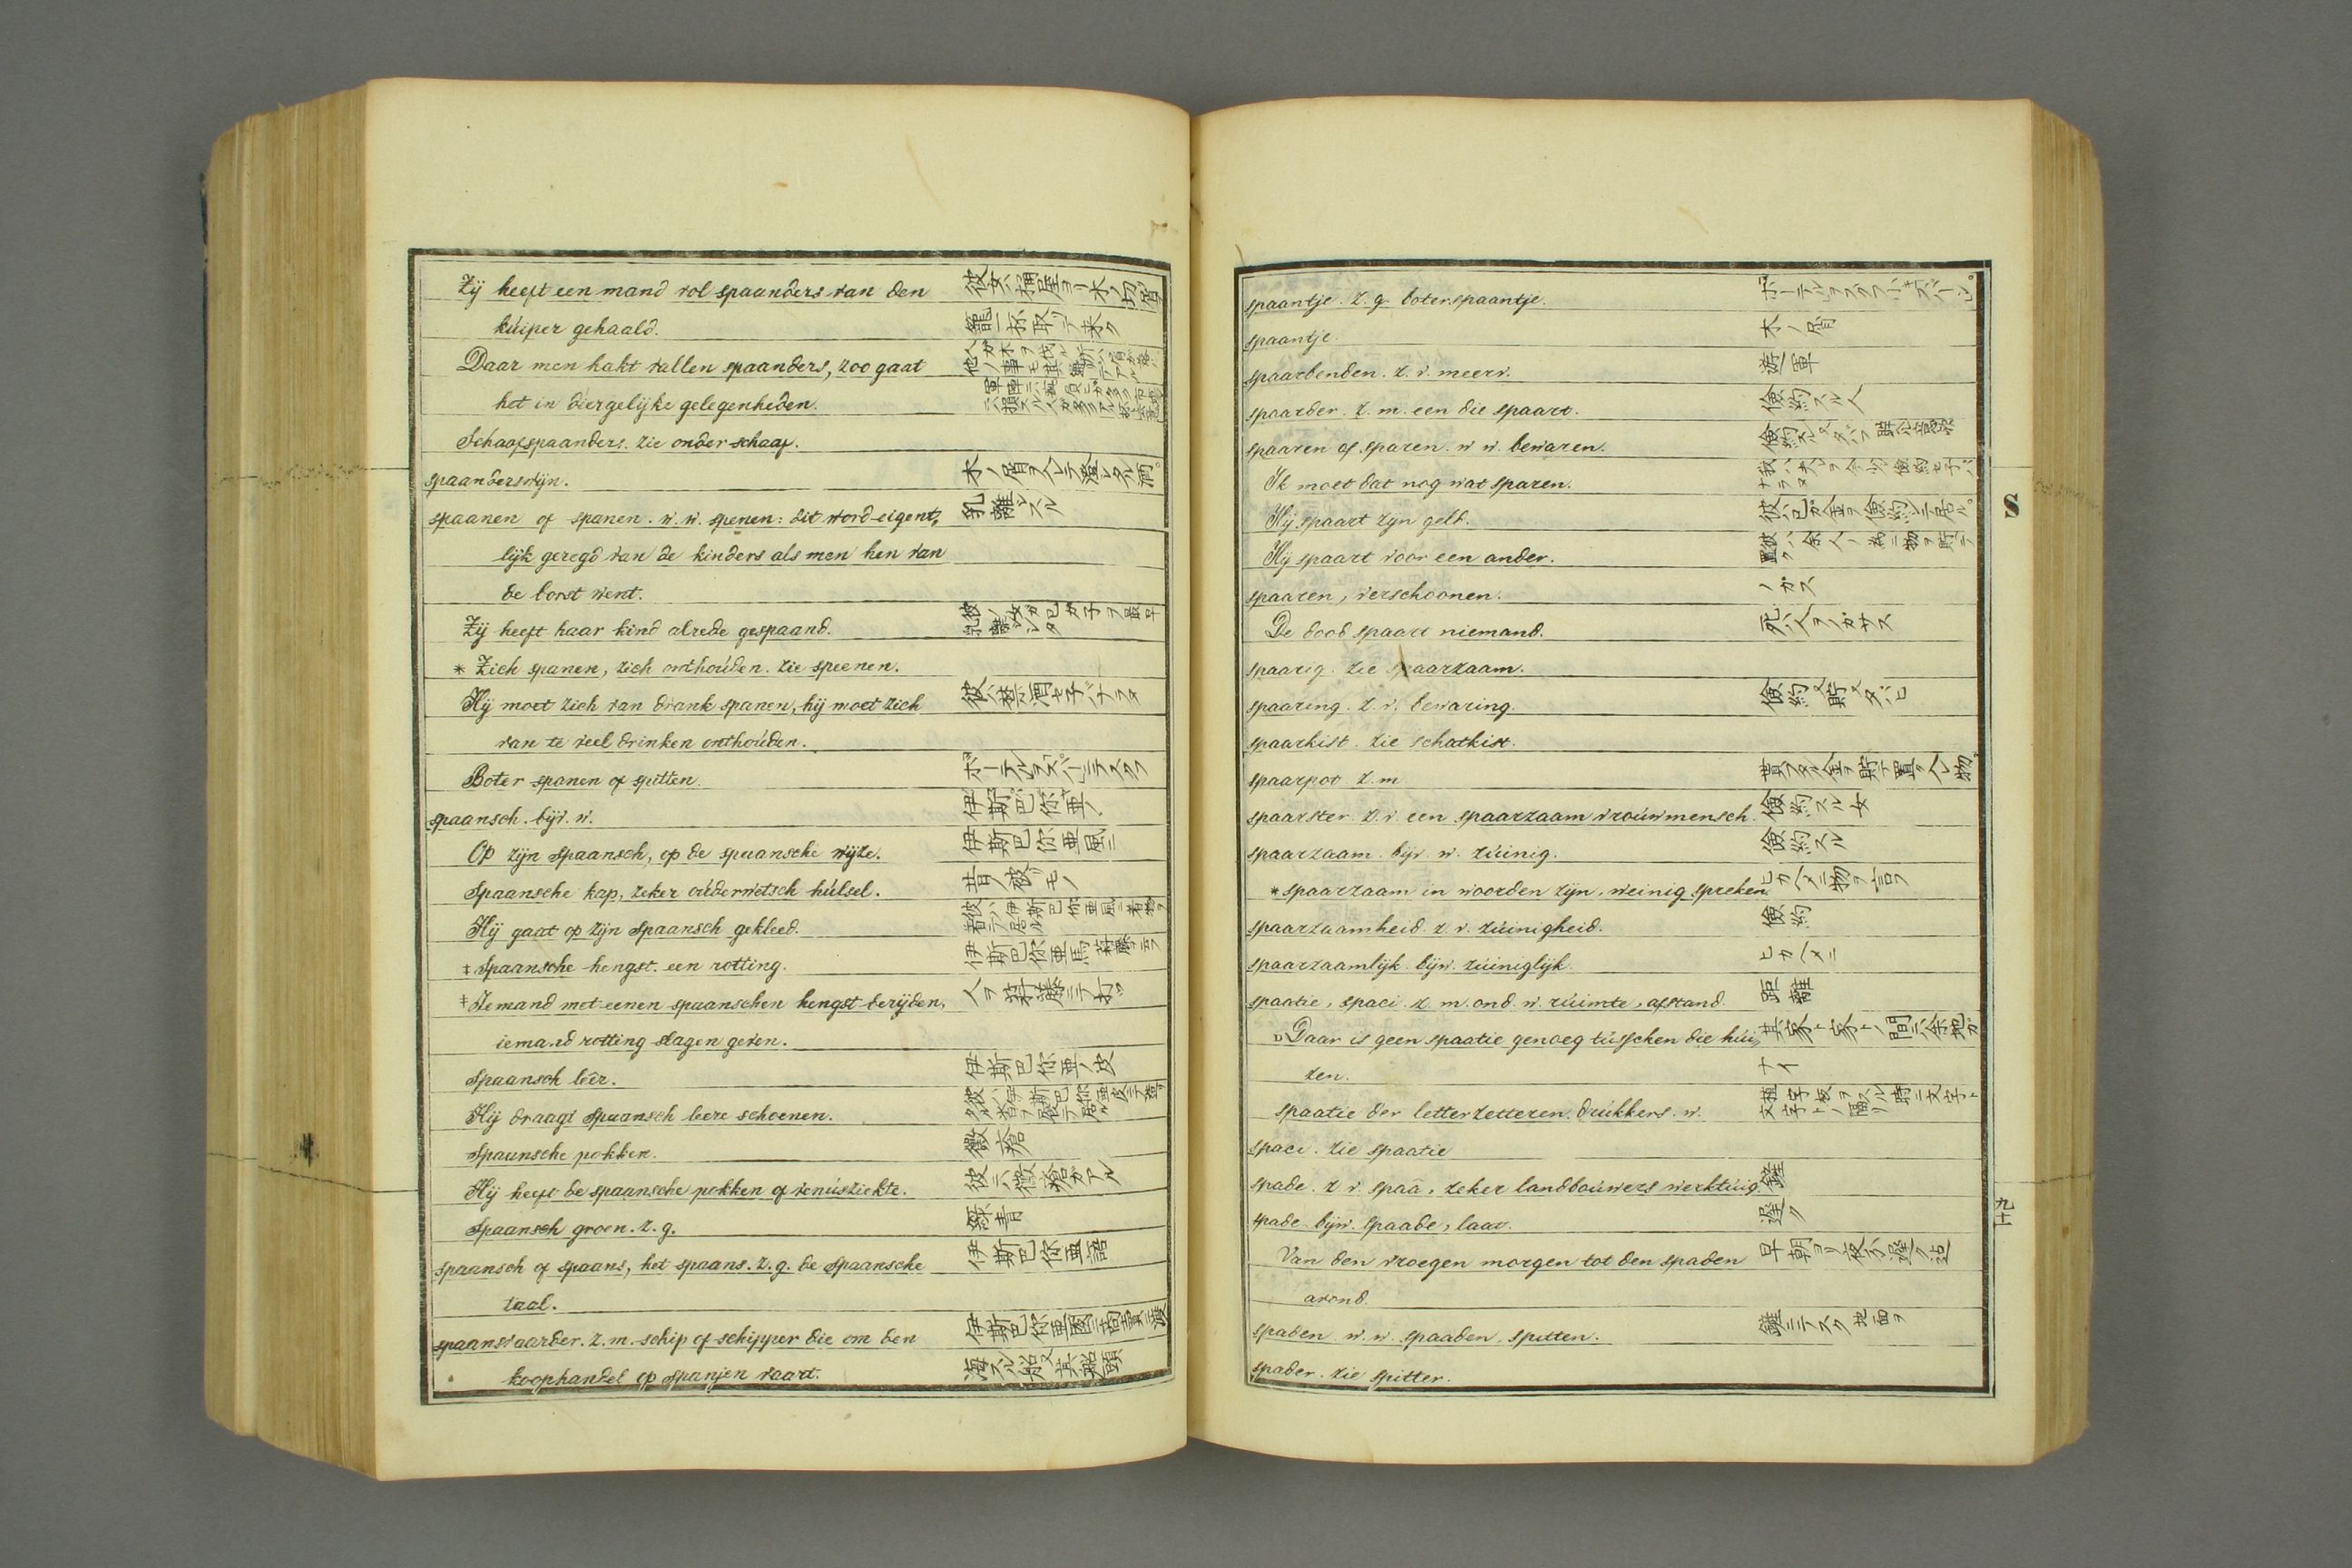 Zij heeft een mand vol spaanders van den 彼女ハ桶屋ヨリ木ノ切屑
kúiper gehaald. 籠一杯取リテ来ク
Daar men hakt vallen spaanders, zoo gaat
het in diergelijke gelegenheden.
Schaafspaanders. zie onder schaaf.
spaanderswijn. 木ノ屑ヲ入レテ澄シタル酒。
spaanen of spanen. w. w. spenen: dit word eigent, 乳離レスル
lijk gezegd van de kinders als men hen van
de borst went.
Zij heeft haar kind alrede gespaand. 彼ノ女ガ己ガ子ヲ最早乳離レシタ
* Zich spanen, zich onthoúden. zie speenen.
Hij moet zich van drank spanen, hij moet zich 彼ハ禁酒セ子バナラヌ
van te veel drinken onthoúden.
Boter spanen of spitten. ボーテルヲスパーンニテスクフ
spaansch. bijv. w. 伊斯巴你亜ノ
Op zijn spaansch, op de spaansche wijze. 伊斯巴你亜風ニ
Spaansche kap, zeker oúderwetsch húlsel. 昔ノ被リモノ
Hij gaat op zijn spaansch gekleed. 彼ハ伊斯巴你亜風ニ着物ヲ着テ居ル
‡ Spaansche hengst. een rotting. 伊斯巴你亜馬 藤ヲ云フ
‡ Iemand met eenen spaanschen hengst berijden, 人ヲ藤ニテ打ツ
iemand rotting slagen geven.
Spaansch leêr. 伊斯巴你亜ノ皮
Hij draagt spaansch leere schoenen. 彼ハ伊斯巴你亜皮ニテ造ツタル沓ヲ履テ居ル
Spaansche pokken. 黴瘡
Hij heeft de spaansche pokken of venúsziekte. 彼ニハ黴瘡ガアル
Spaansch groen. z. g. 緑青
spaansch of spaans, het spaans. z. g. de spaansche 伊斯巴你亜語
taal.
spaansvaarder. z. m. schip of schipper die om den 伊斯巴你亜國ニ商賣ニ渡
koophandel op spanjen vaart. 海スル船又其船頭
spaantje. z. g. boterspaantje. ボーテルヲスクフ小キスパーン。
spaantje. 木ノ屑
spaarbenden. z. v. meerv. 遊軍
spaarder. z. m. een die spaart. 倹約スル人
spaaren of sparen. w. w. bewaren.
Ik moet dat nog wat sparen. 我ハ夫レヲ今少シ倹約セ子バナラヌ
Hij spaart zijn geld. 彼ハ己ガ金ヲ倹約シテ居ル。
Hij spaart voor een ander. 彼ハ余人ノ為ニ物ヲ貯テ置ク
spaaren, verschoonen. ノガス
De dood spaart niemand. 死ハ人ヲノガサヌ
spaarig. zie spaarzaam.
spaaring. z. v. bewaring. 倹約又貯メタクハヒ
spaarkist. zie schatkist.
spaarpot z. m
spaarster. z. v. een spaarzaam vroúwmensch. 倹約スル女
spaarzaam. bijv. w. zúinig. 倹約スル
* spaarzaam in woorden zijn, weinig spreken. ヒカヘメニ物ヲ言フ
spaarzaamheid. z. v. zúinigheid. 倹約
spaarzaamlijk. bijw. zúiniglijk. ヒカヘメニ
spaatie, spaci. z. m. ond. w. rúimte, afstand. 距離
Daar is geen spaatie genoeg tússchen die húi, 其家ト家トノ間ニハ余地ガ
zen. ナイ
spaatie der letterzetteren. drúkkers. w. 植字板ヲスル時ニ文字ト文字トノ隔リ
spaci. zie spaatie
spade. z v. spaâ, zeker landboúwers werktúig.
spade. bijw. spaade, laat. 遅ク
Van den vroegen morgen tot den spaden 早朝ヨリ夜ル遅ク迄
avond.
spaden. w. w. spaaden, spitten.
spader. zie spitter.
S
九十